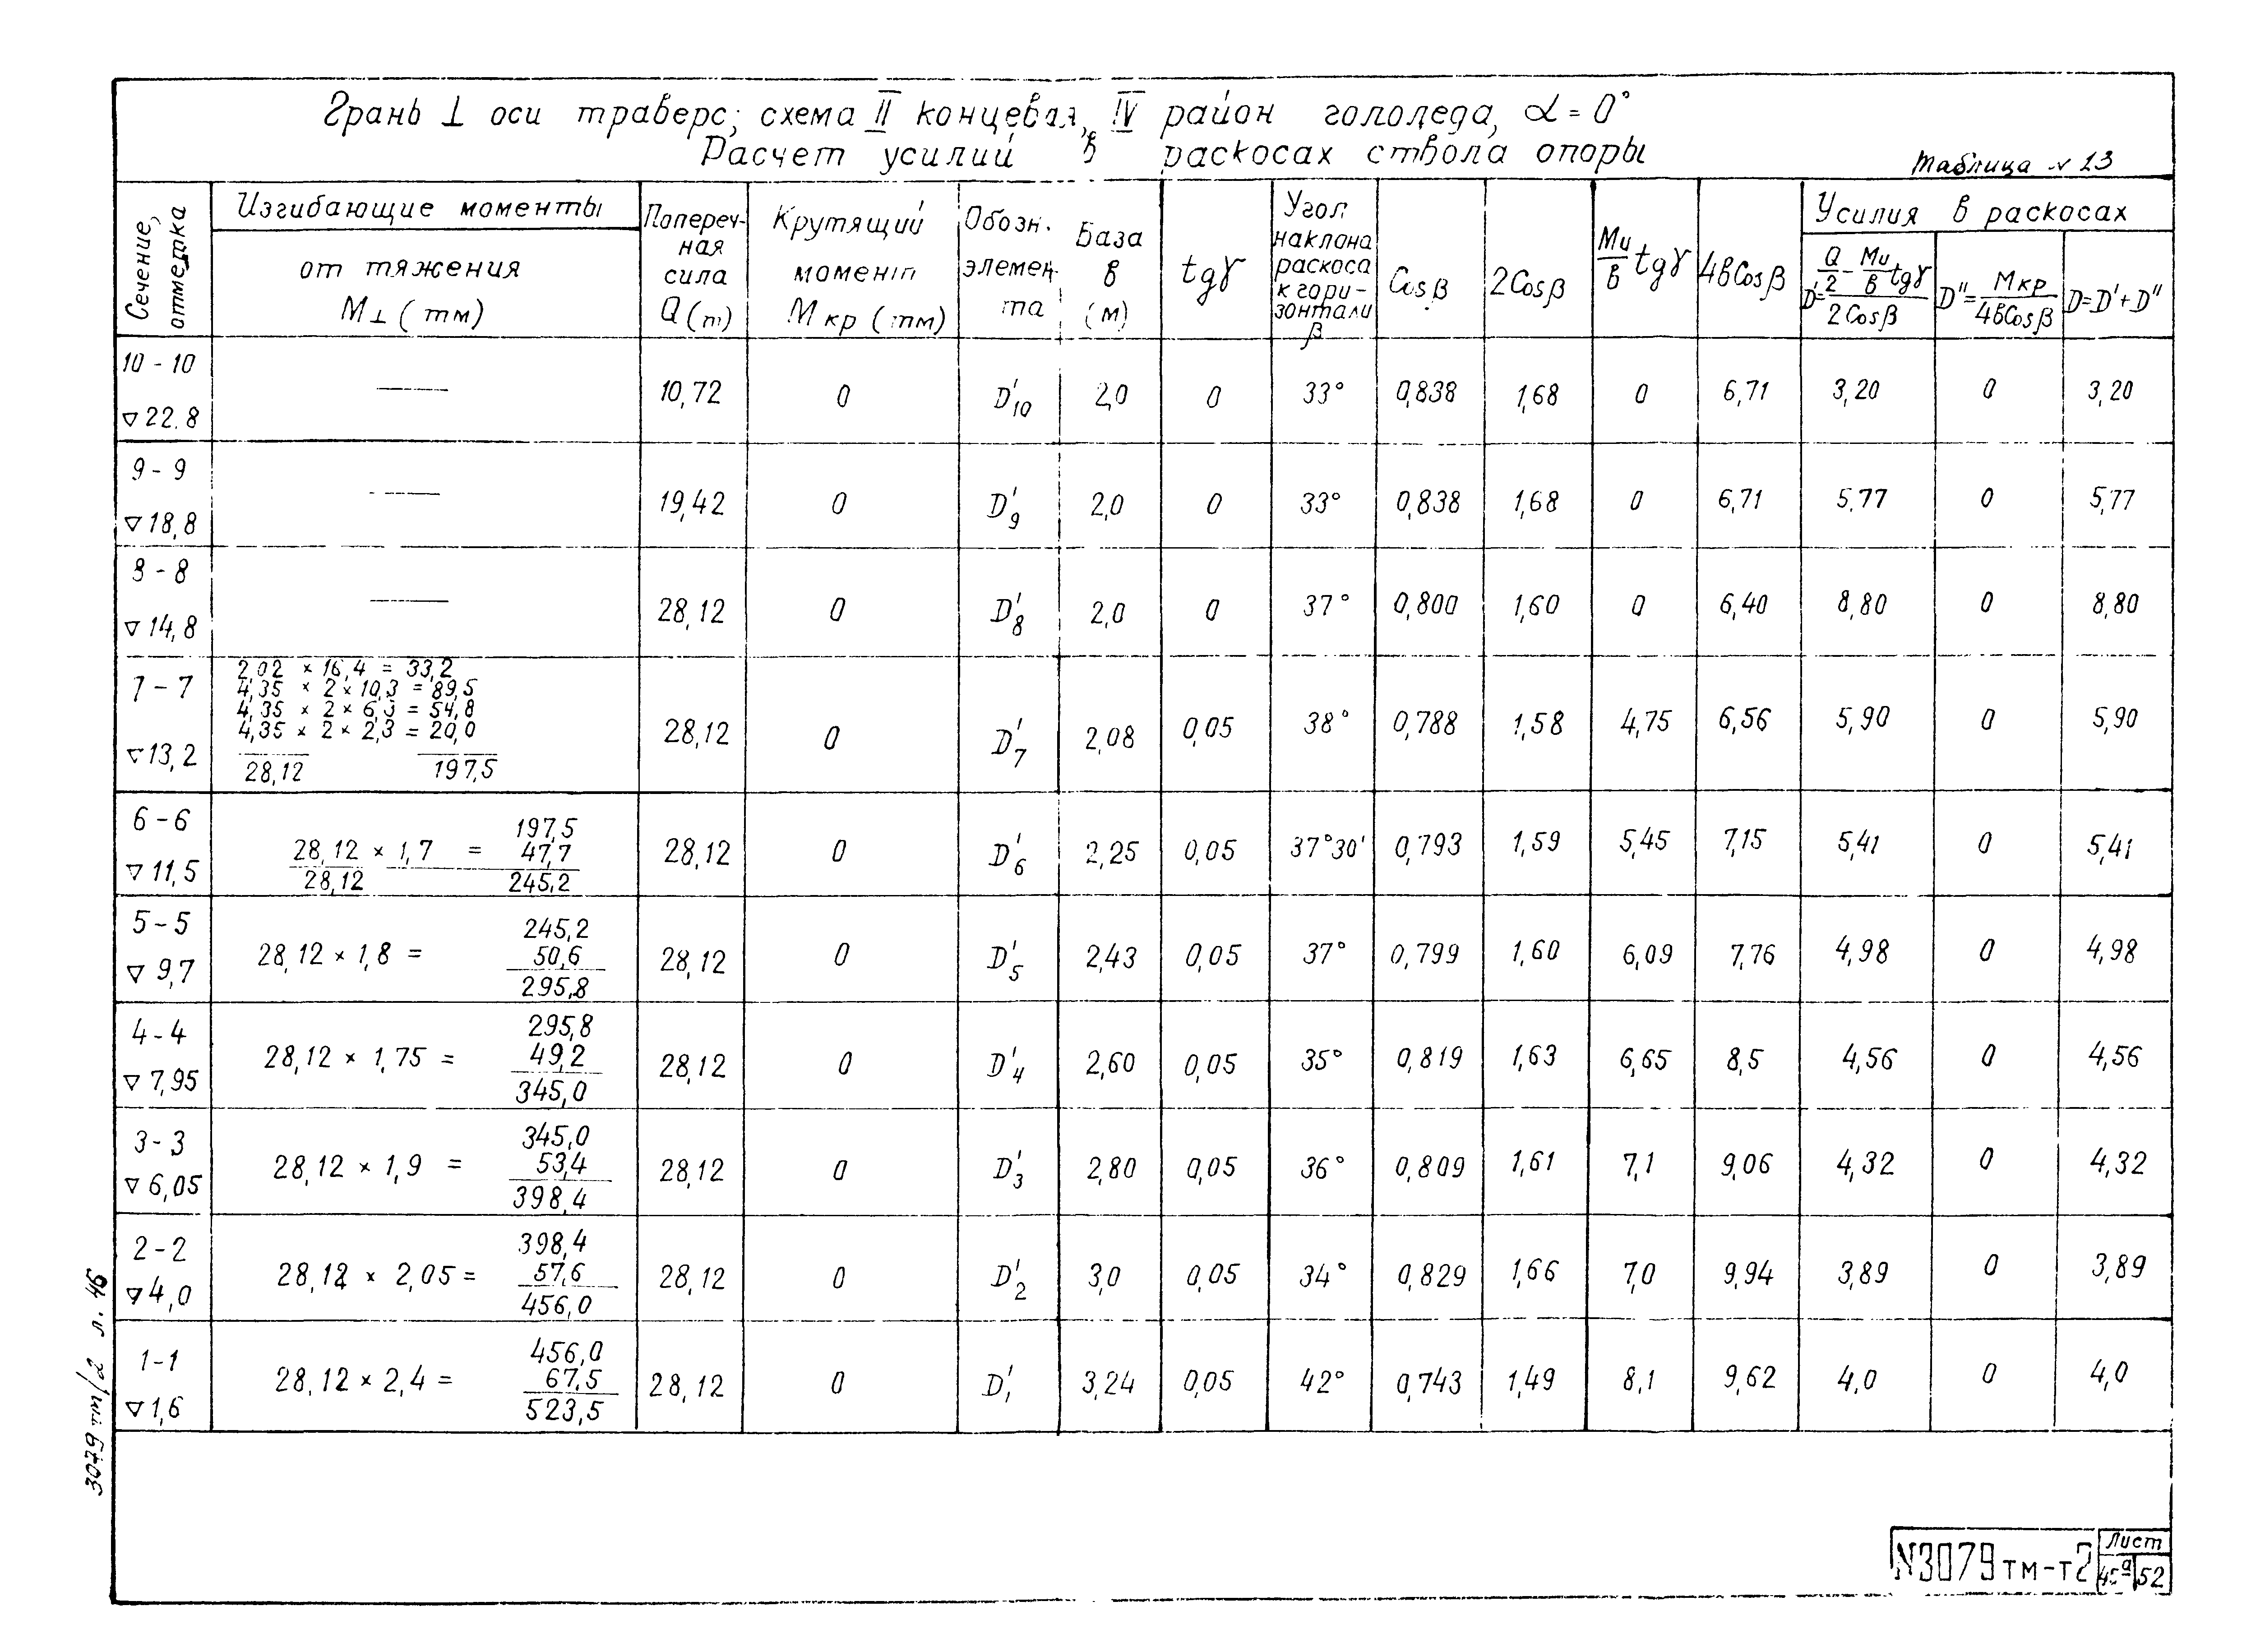 Грань ⊥ оси траверс; схема II концевая, IV район гололеда, α = 0°
Расчет усилий в раскосах ствола опоры
Таблица №13
Сечение, отметка
Изгибающие моменты
от тяжения
M⊥ (тм)
Попереч-
ная
сила
Q (т)
Крутящий
момент
Mкр (тм)
Обозн.
элемен-
та
База
в
(м)
tgγ
Угол
наклона
раскоса
к гори-
зонтали
β
Cosβ
2Cosβ
Mи/в tgγ
4вCosβ
Усилия в раскосах
D' = (Q/2 - Mи/в tgγ)/2Cosβ
D'' = Mкр/4вCosβ
D=D'+D''
10 - 10
▽22.8
—
10,72 0 D'10 2,0 0 33° 0,838 1,68 0 6,71 3,20 0 3,20
9 - 9
▽18,8
—
19,42 0 D'9 2,0 0 33° 0,838 1,68 0 6,71 5,77 0 5,77
8 - 8
▽14,8
—
28,12 0 D'8 2,0 0 37° 0,800 1,60 0 6,40 8,80 0 8,80
7 - 7
▽13,2
2,02 × 16,4 = 33,2
4,35 × 2 × 10,3 = 89,5
4,35 × 2 × 6,3 = 54,8
4,35 × 2 × 2,3 = 20,0
28,12 197,5
28,12 0 D'7 2,08 0,05 38° 0,788 1,58 4,75 6,56 5,90 0 5,90
6 - 6
▽11,5
197,5
28,12 × 1,7 = 47,7
28,12 245,2
28,12 0 D'6 2,25 0,05 37°30' 0,793 1,59 5,45 7,15 5,41 0 5,41
5 - 5
▽9,7
245,2
28,12 × 1,8 = 50,6
295,8
28,12 0 D'5 2,43 0,05 37° 0,799 1,60 6,09 7,76 4,98 0 4,98
4 - 4
▽7,95
295,8
28,12 × 1,75 = 49,2
345,0
28,12 0 D'4 2,60 0,05 35° 0,819 1,63 6,65 8,5 4,56 0 4,56
3 - 3
▽6,05
345,0
28,12 × 1,9 = 53,4
398,4
28,12 0 D'3 2,80 0,05 36° 0,809 1,61 7,1 9,06 4,32 0 4,32
2 - 2
▽4,0
398,4
28,12 × 2,05 = 57,6
456,0
28,12 0 D'2 3,0 0,05 34° 0,829 1,66 7,0 9,94 3,89 0 3,89
1-1
▽1,6
456,0
28,12 × 2,4 = 67,5
523,5
28,12 0 D'1 3,24 0,05 42° 0,743 1,49 8,1 9,62 4,0 0 4,0
N3079тм-т2
Лист
45а 52